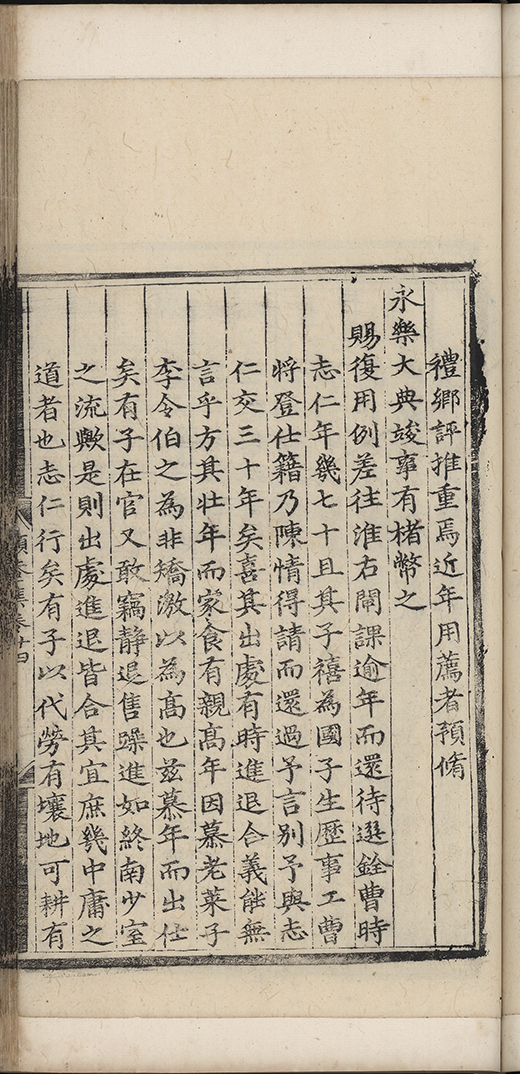 禮鄉評推重焉近年用薦者預脩
永樂大典竣事有楮幣之
賜復用例差往淮右閘課逾年而還待選銓曹時
志仁年幾七十且其子禧為國子生歷事工曹
將登仕籍乃陳情得請而還過予言別予與志
仁交三十年矣喜其出處有時進退合義能無
言乎方其壯年而家食有親髙年因慕老萊子
李令伯之為非矯激以為髙也兹慕年而出仕
矣有子在官又敢竊静退售躁進如終南少室
之流歟是則出處進退皆合其宜庶幾中庸之
道者也志仁行矣有子以代勞有壤地可耕有
頥菴集卷廿四